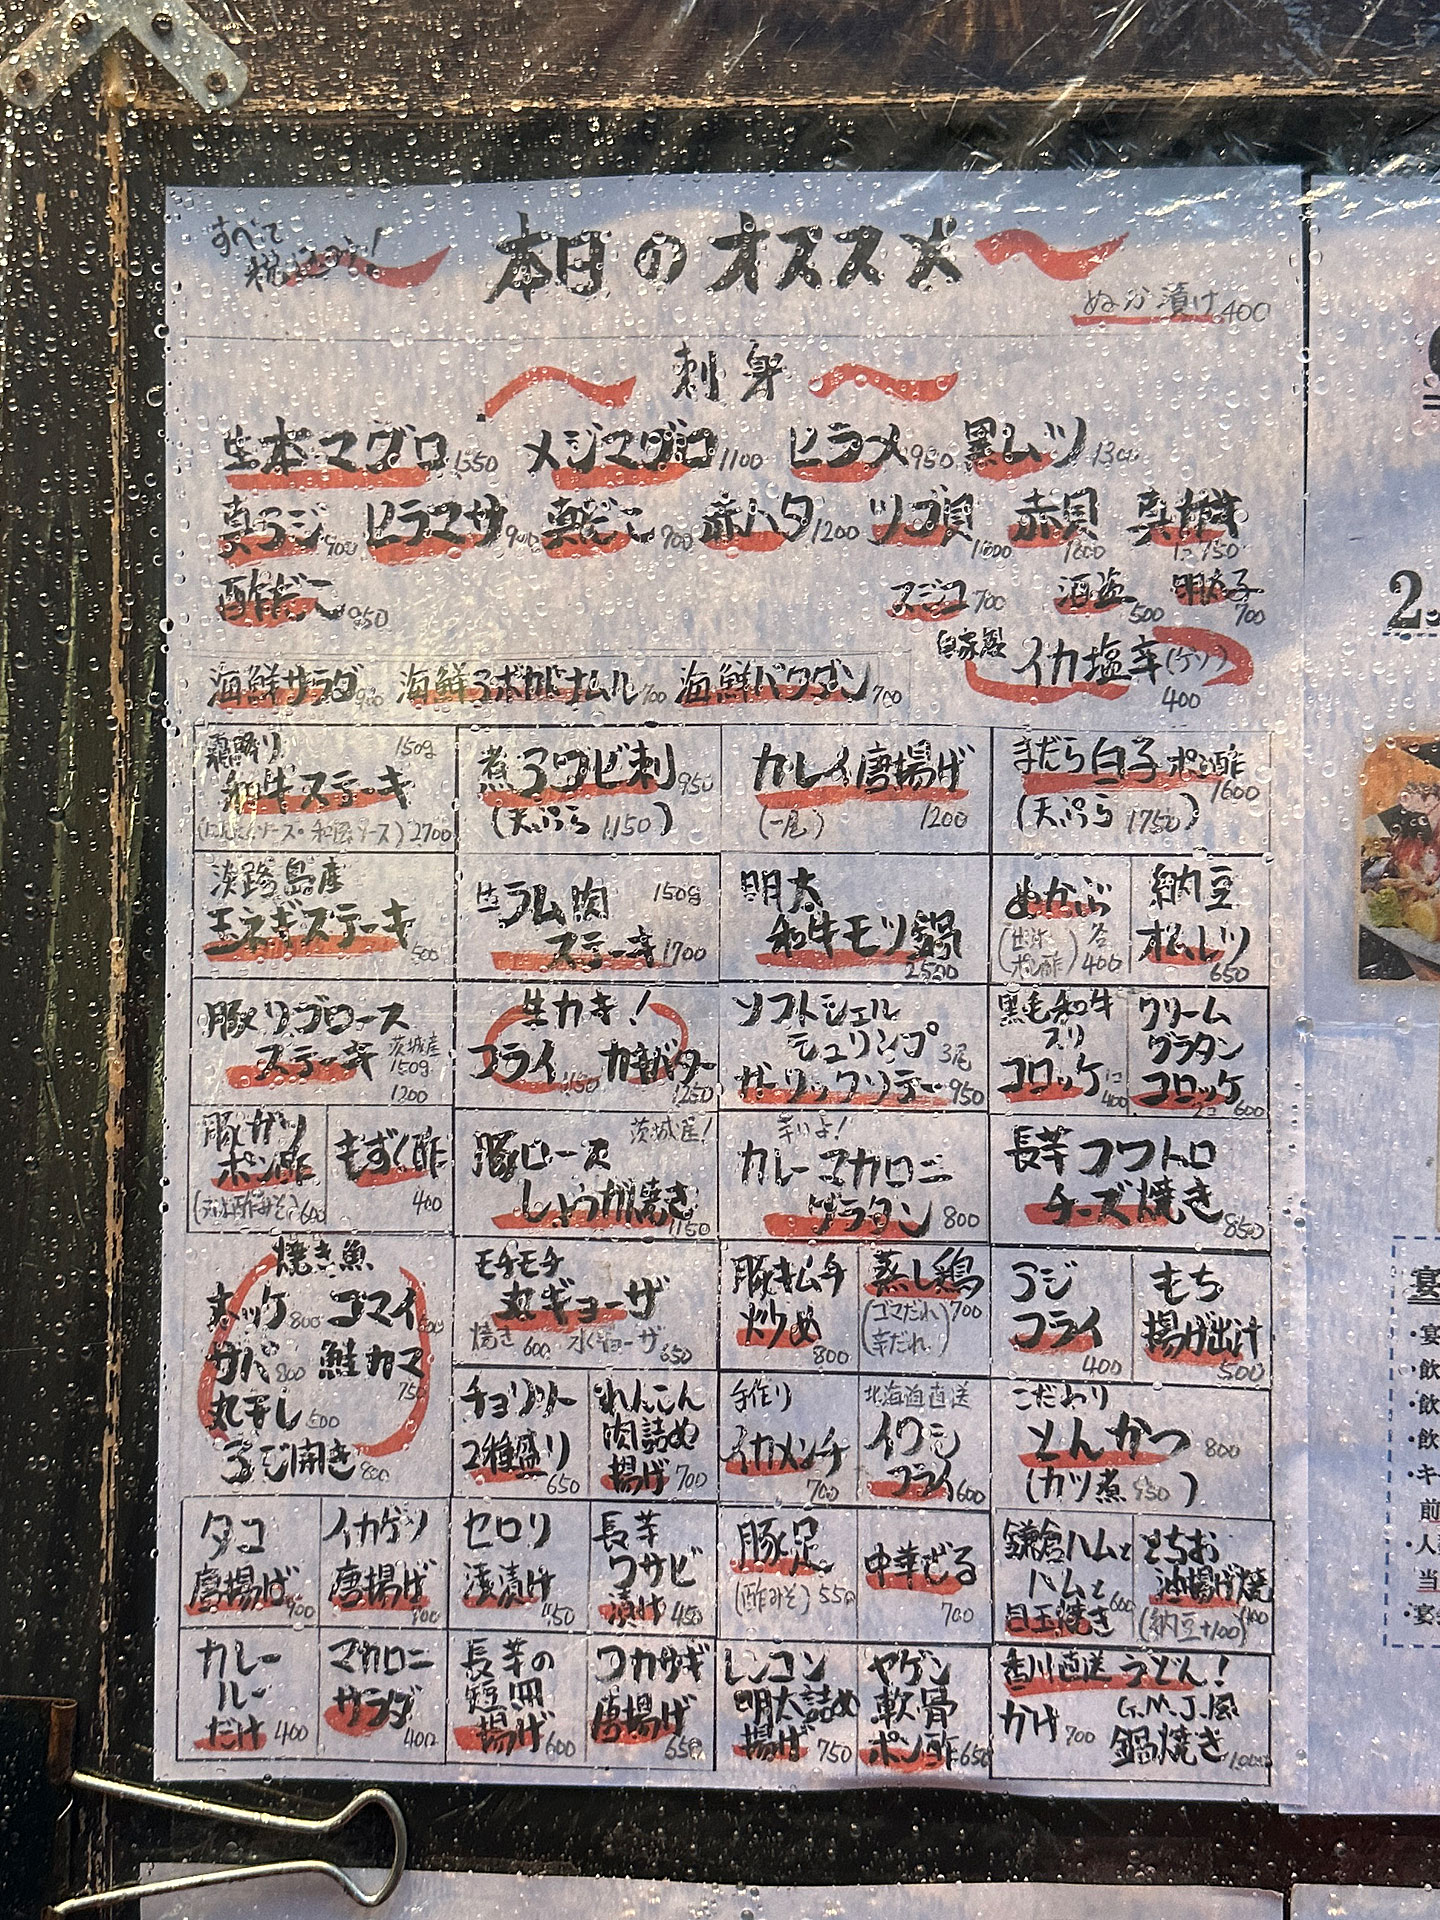 すべて
税込み!
本日のオススメ
ぬか漬け 400
刺身
生本マグロ 1550 メジマグロ 1100 ヒラメ 950 黒ムツ 1300
真アジ 700 ヒラマサ 900 真だこ 900 赤ハタ 1200 ツブ貝 1000 赤貝 1600 真カキ 1コ 750
酢だこ 950 スジコ 700 酒盗 500 明太子 700
自家製 イカ塩辛(ゲソ) 400
海鮮サラダ 900 海鮮アボカドナムル 700 海鮮バクダン 700
霜降り 150g
和牛ステーキ
(にんにくソース・和風ソース) 2700
煮アワビ刺 950
(天ぷら 1150)
カレイ唐揚げ
(一尾) 1200
まだら白子ポン酢 1600
(天ぷら 1750)
淡路島産
玉ネギステーキ 500
生ラム肉 150g
ステーキ 1700
明太
和牛モツ鍋
2500
めかぶ
ポン酢 各400
納豆
オムレツ
650
豚リブロース
ステーキ 茨城産 150g
1200
生カキ!
フライ 1150 カキバター 1250
ソフトシェル
シュリンプ 3尾
ガーリックソテー 950
黒毛和牛
スジ
コロッケ 1コ 400
クリーム
グラタン
コロッケ
2コ 600
豚ガツ
ポン酢
600
もずく酢
400
豚ロース 茨城産!
しょうが焼き
1150
辛いよ!
カレーマカロニ
グラタン 800
長芋コワトロ
チーズ焼き 850
焼き魚
ホッケ 800 コマイ 600
サバ 800 鮭カマ 750
丸干し 500
アジ開き 800
モチモチ
丸ギョーザ
焼き 600 水ギョーザ 650
豚キムチ
炒め
800
蒸し鶏
(ゴマだれ 700
辛だれ)
アジ
フライ
400
もち
揚げ出汁
500
チョリソー
2種盛り
650
れんこん
肉詰め
揚げ 700
手作り
イカメンチ
700
北海道直送
イワシ
フライ 600
こだわり
とんかつ 800
(カツ煮 950)
タコ
唐揚げ 700
イカゲソ
唐揚げ
700
セロリ
浅漬け
450
長芋
ワサビ
漬け 450
豚足
(酢みそ) 550
中華どる
700
鎌倉ハムと
ハムと 600
目玉焼き
とちお
油揚げ焼
(納豆+100)
カレー
ルー
だけ 400
マカロニ
サラダ
400
長芋の
短冊
揚げ 600
ワカサギ
唐揚げ
650
レンコン
明太詰め
揚げ 750
ヤゲン
軟骨
ポン酢 650
香川直送 うどん!
かけ 700 G.M.J.風
鍋焼き 1000